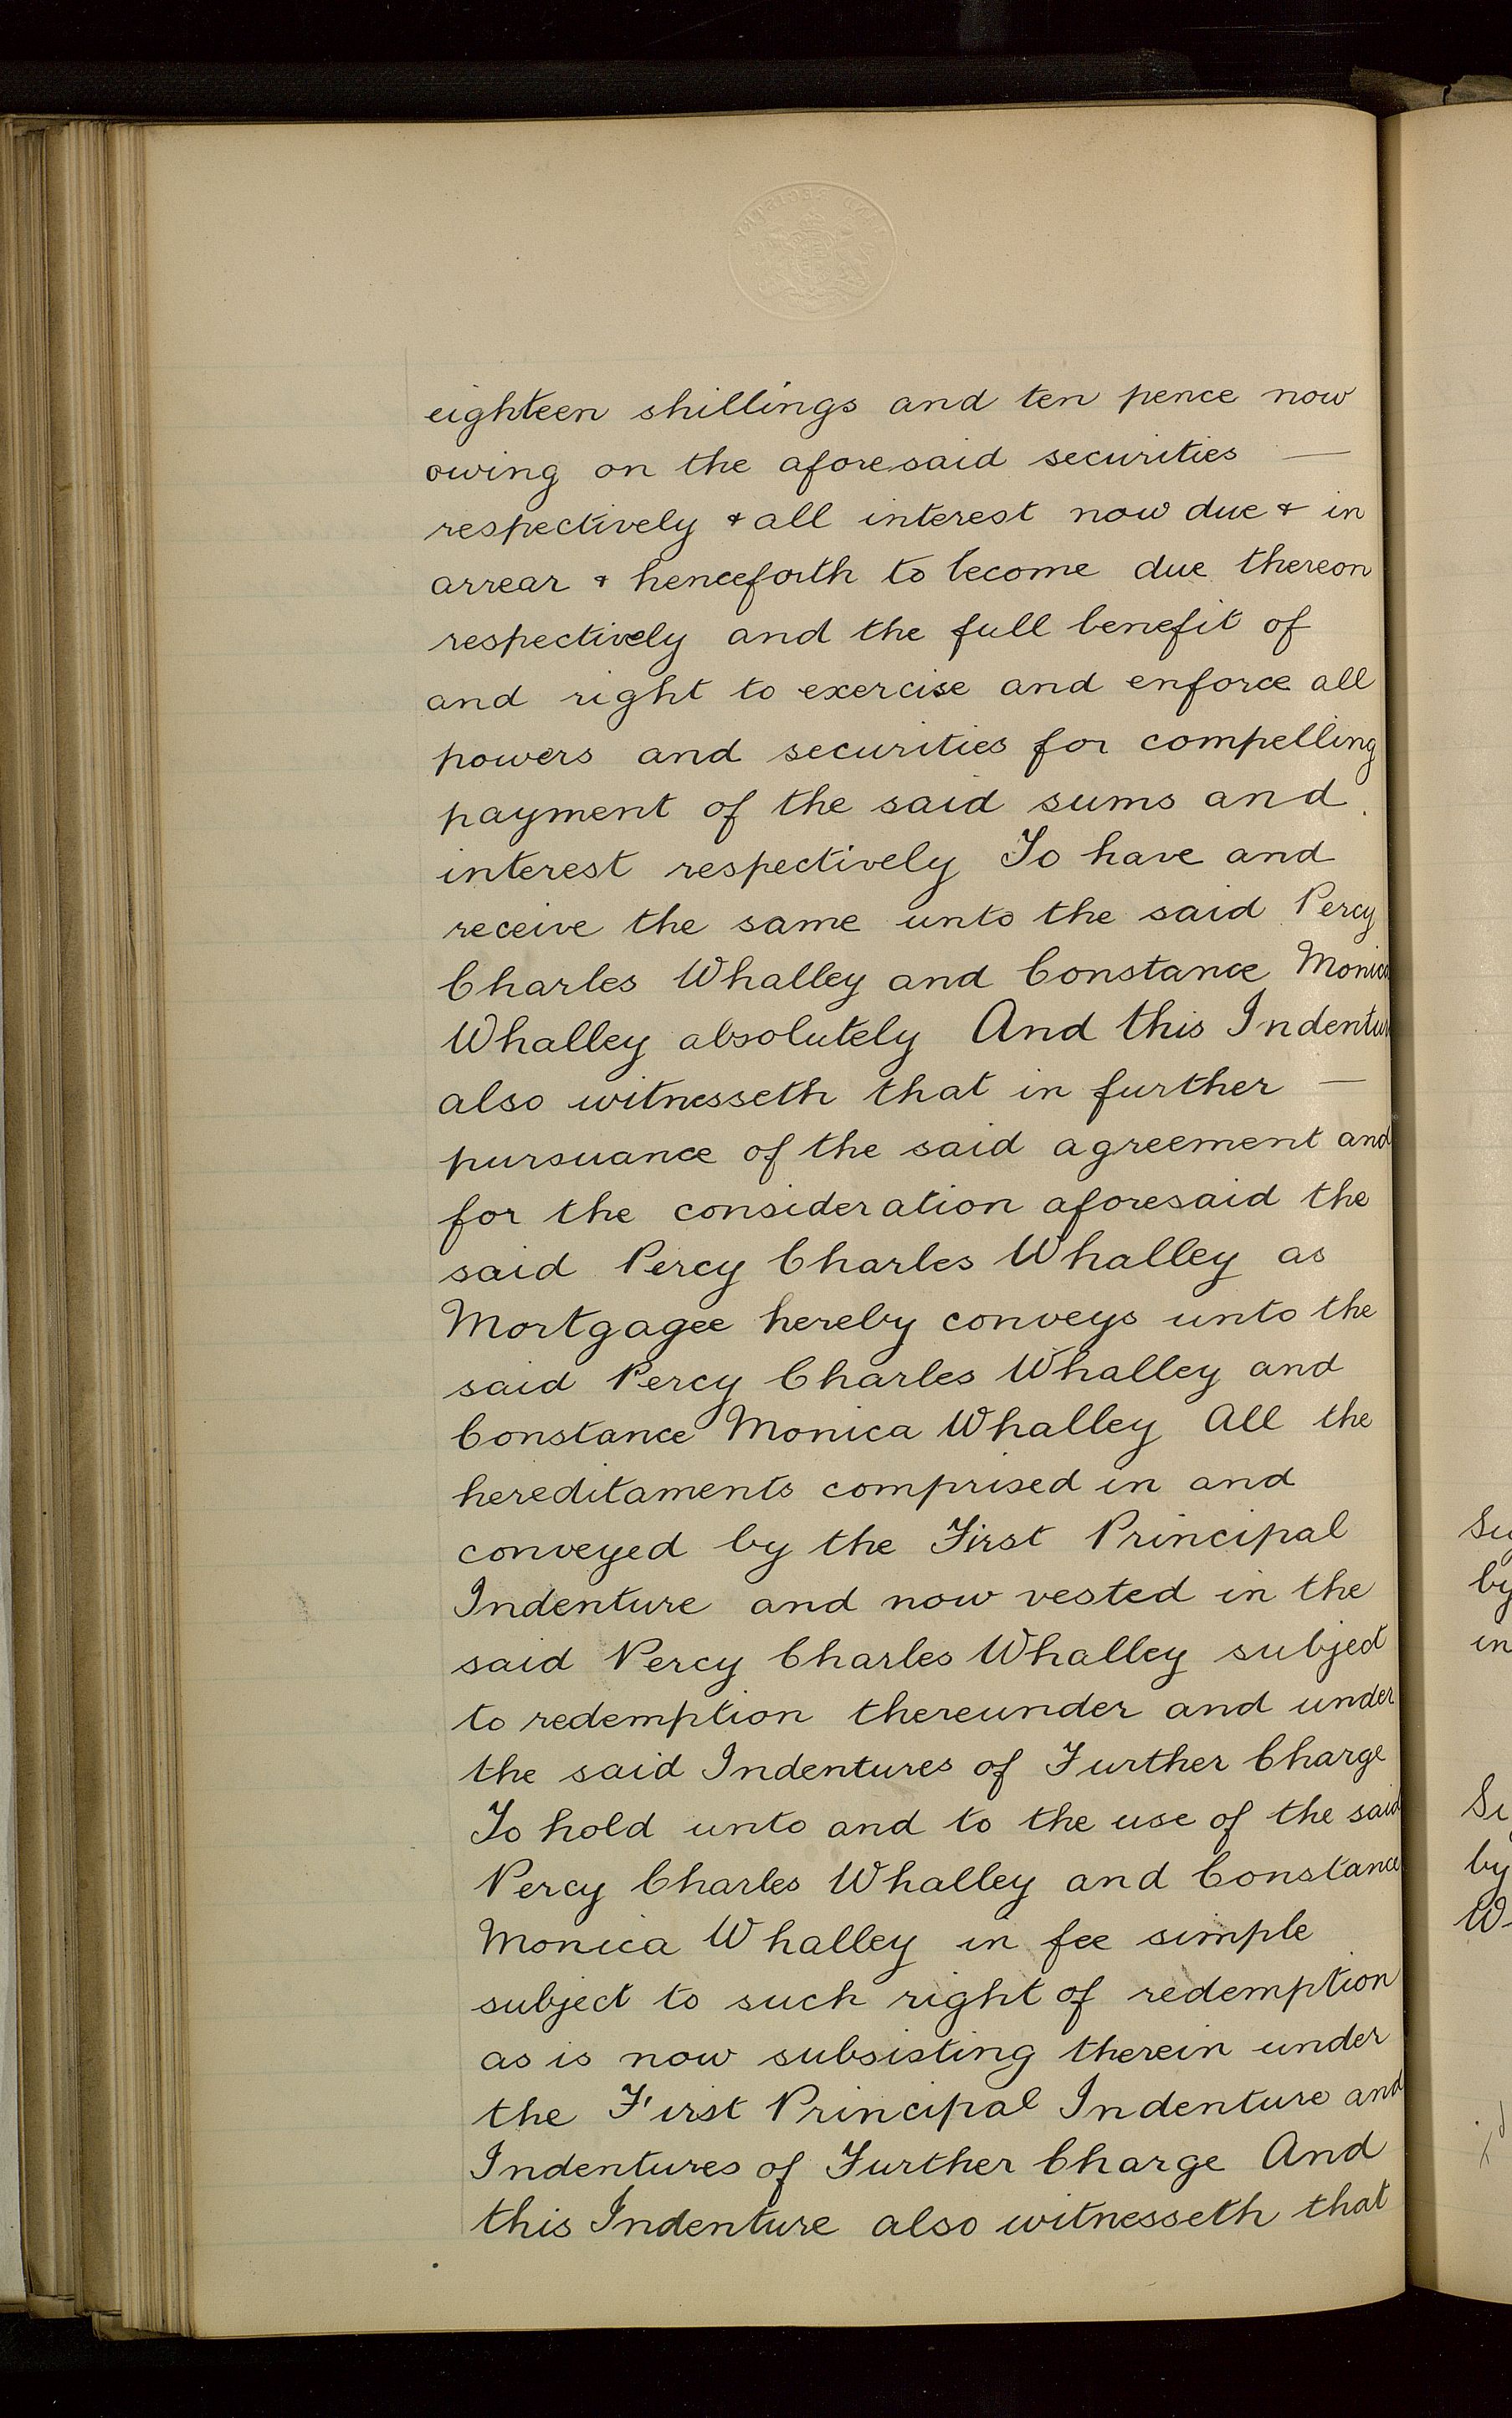 eighteen shillings and ten pence now
owing on the aforesaid securities —
respectively & all interest now due & in
arrear & henceforth to become due thereon
respectively and the full benefit of
and right to exercise and enforce all
powers and securities for compelling
payment of the said sums and
interest respectively To have and
receive the same unto the said Percy
Charles Whalley and Constance Monica
Whalley absolutely And this Indentur
also witnesseth that in further —
pursuance of the said agreement and
for the consideration aforesaid the
said Percy Charles Whalley as
Mortgagee hereby conveys unto the
said Percy Charles Whalley and
Constance Monica Whalley All the
hereditaments comprised in and
conveyed by the First Principal
Indenture and now vested in the
said Percy Charles Whalley subject
to redemption thereunder and under
the said Indentures of Further Charge
To hold unto and to the use of the said
Percy Charles Whalley and Constance
Monica Whalley in fee simple
subject to such right of redemption
as is now subsisting therein under
the First Principal Indenture and
Indentures of Further Charge And
this Indenture also witnesseth that
by
in
by